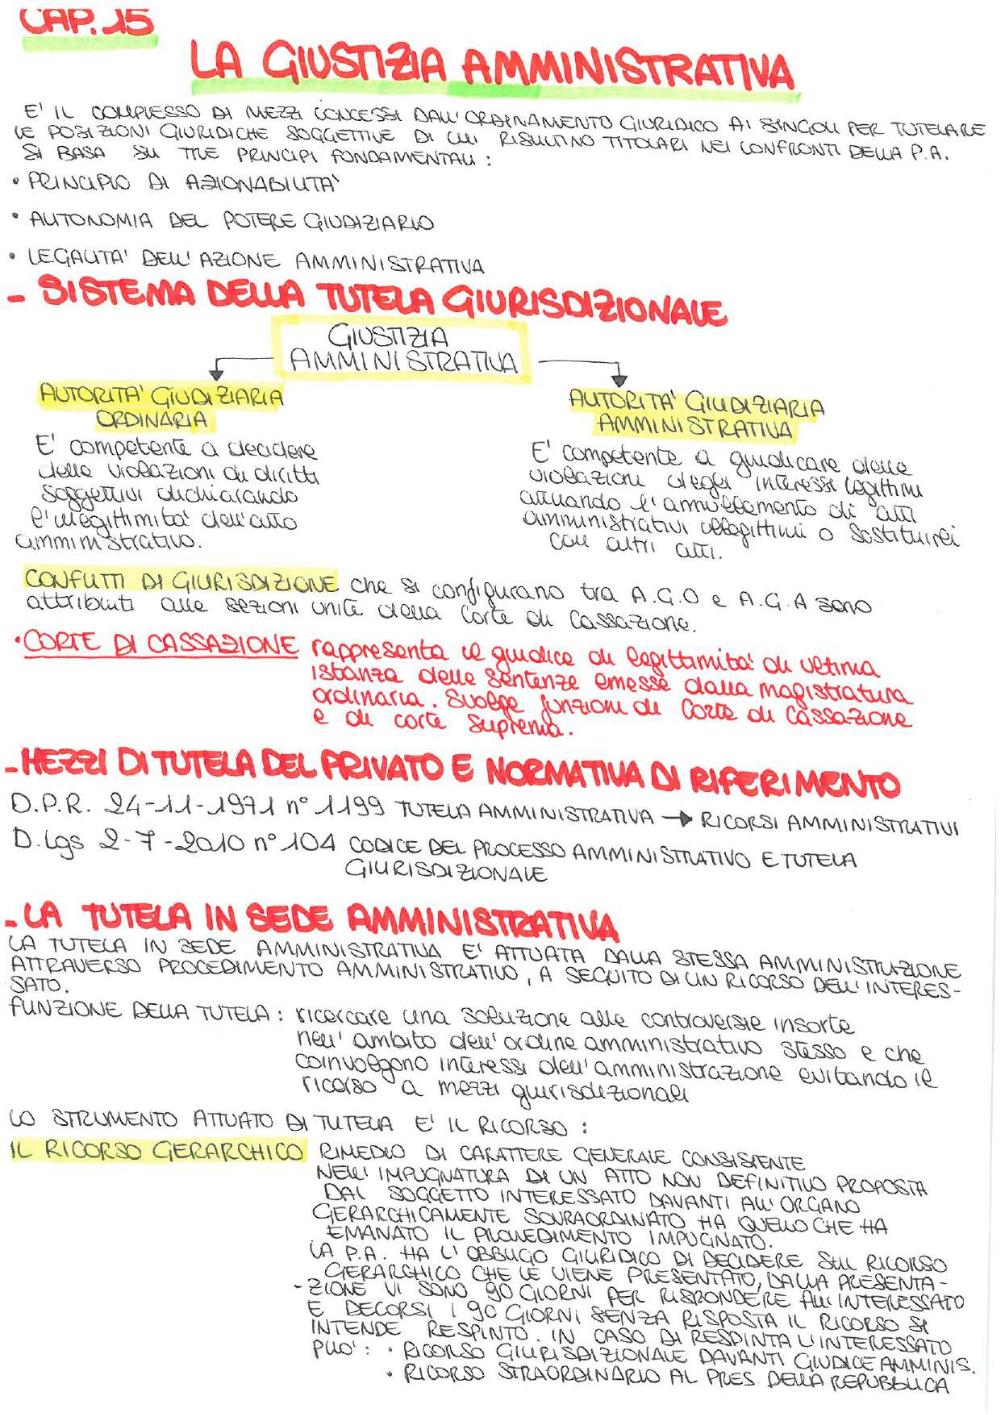 CAP. 15
LA GIUSTIZIA AMMINISTRATIVA
E' IL COMPLESSO DI MEZZI CONCESSI DALL'ORDINAMENTO GIURIDICO AI SINGOLI PER TUTELARE
LE POSIZIONI GIURIDICHE SOGGETTIVE DI CUI RISULTINO TITOLARI NEI CONFRONTI DELLA P.A.
SI BASA SU TRE PRINCIPI FONDAMENTALI :
• PRINCIPIO DI AZIONABILITA'
• AUTONOMIA DEL POTERE GIUDIZIARIO
• LEGALITA' DELL'AZIONE AMMINISTRATIVA
- SISTEMA DELLA TUTELA GIURISDIZIONALE
GIUSTIZIA
AMMINISTRATIVA
AUTORITA' GIUDIZIARIA
ORDINARIA
E' competente a decidere
delle violazioni di diritti
soggettivi dichiarando
l'illegittimità dell'atto
amministrativo.
AUTORITA' GIUDIZIARIA
AMMINISTRATIVA
E' competente a giudicare delle
violazioni degli interessi legittimi
attuando l'annullamento di atti
amministrativi illegittimi o sostituirli
con altri atti.
CONFLITTI DI GIURISDIZIONE che si configurano tra A.G.O e A.G.A sono
attribuiti alle sezioni unite della Corte di Cassazione.
• CORTE DI CASSAZIONE rappresenta il giudice di legittimità di ultima
istanza delle sentenze emesse dalla magistratura
ordinaria. Svolge funzioni di Corte di Cassazione
e di corte suprema.
- MEZZI DI TUTELA DEL PRIVATO E NORMATIVA DI RIFERIMENTO
D.P.R. 24-11-1971 n° 1199 TUTELA AMMINISTRATIVA → RICORSI AMMINISTRATIVI
D.lgs 2-7-2010 n° 104 CODICE DEL PROCESSO AMMINISTRATIVO E TUTELA
GIURISDIZIONALE
- LA TUTELA IN SEDE AMMINISTRATIVA
LA TUTELA IN SEDE AMMINISTRATIVA E' ATTUATA DALLA STESSA AMMINISTRAZIONE
ATTRAVERSO PROCEDIMENTO AMMINISTRATIVO, A SEGUITO DI UN RICORSO DELL'INTERES-
SATO.
FUNZIONE DELLA TUTELA : ricercare una soluzione alle controversie insorte
nell'ambito dell'ordine amministrativo stesso e che
coinvolgono interessi dell'amministrazione evitando il
ricorso a mezzi giurisdizionali
LO STRUMENTO ATTUATO DI TUTELA E' IL RICORSO :
IL RICORSO GERARCHICO RIMEDIO DI CARATTERE GENERALE CONSISTENTE
NELL'IMPUGNATURA DI UN ATTO NON DEFINITIVO PROPOSTA
DAL SOGGETTO INTERESSATO DAVANTI ALL'ORGANO
GERARCHICAMENTE SOVRAORDINATO HA QUELLO CHE HA
EMANATO IL PROVVEDIMENTO IMPUGNATO.
LA P.A. HA L'OBBLIGO GIURIDICO DI DECIDERE SUL RICORSO
GERARCHICO CHE LE VIENE PRESENTATO, DALLA PRESENTA-
-ZIONE VI SONO 90 GIORNI PER RISPONDERE ALL'INTERESSATO
E DECORSI I 90 GIORNI SENZA RISPOSTA IL RICORSO SI
INTENDE RESPINTO. IN CASO DI RESPINTA L'INTERESSATO
PUO' : • RICORSO GIURISDIZIONALE DAVANTI GIUDICE AMMINIS.
• RICORSO STRAORDINARIO AL PRES. DELLA REPUBBLICA